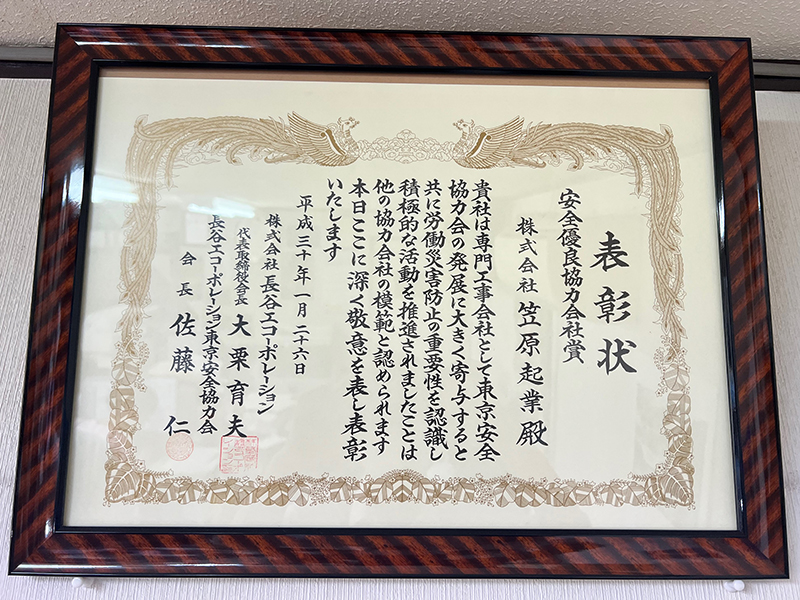 表彰状
安全優良協力会社賞
株式会社 笠原起業殿
貴社は専門工事会社として東京安全
協力会の発展に大きく寄与すると
共に労働災害防止の重要性を認識し
積極的な活動を推進されましたことは
他の協力会社の模範と認められます
本日ここに深く敬意を表し表彰
いたします
平成三十年一月二十六日
株式会社長谷工コーポレーション
代表取締役会長 大栗育夫
長谷工コーポレーション東京安全協力会
会長 佐藤仁